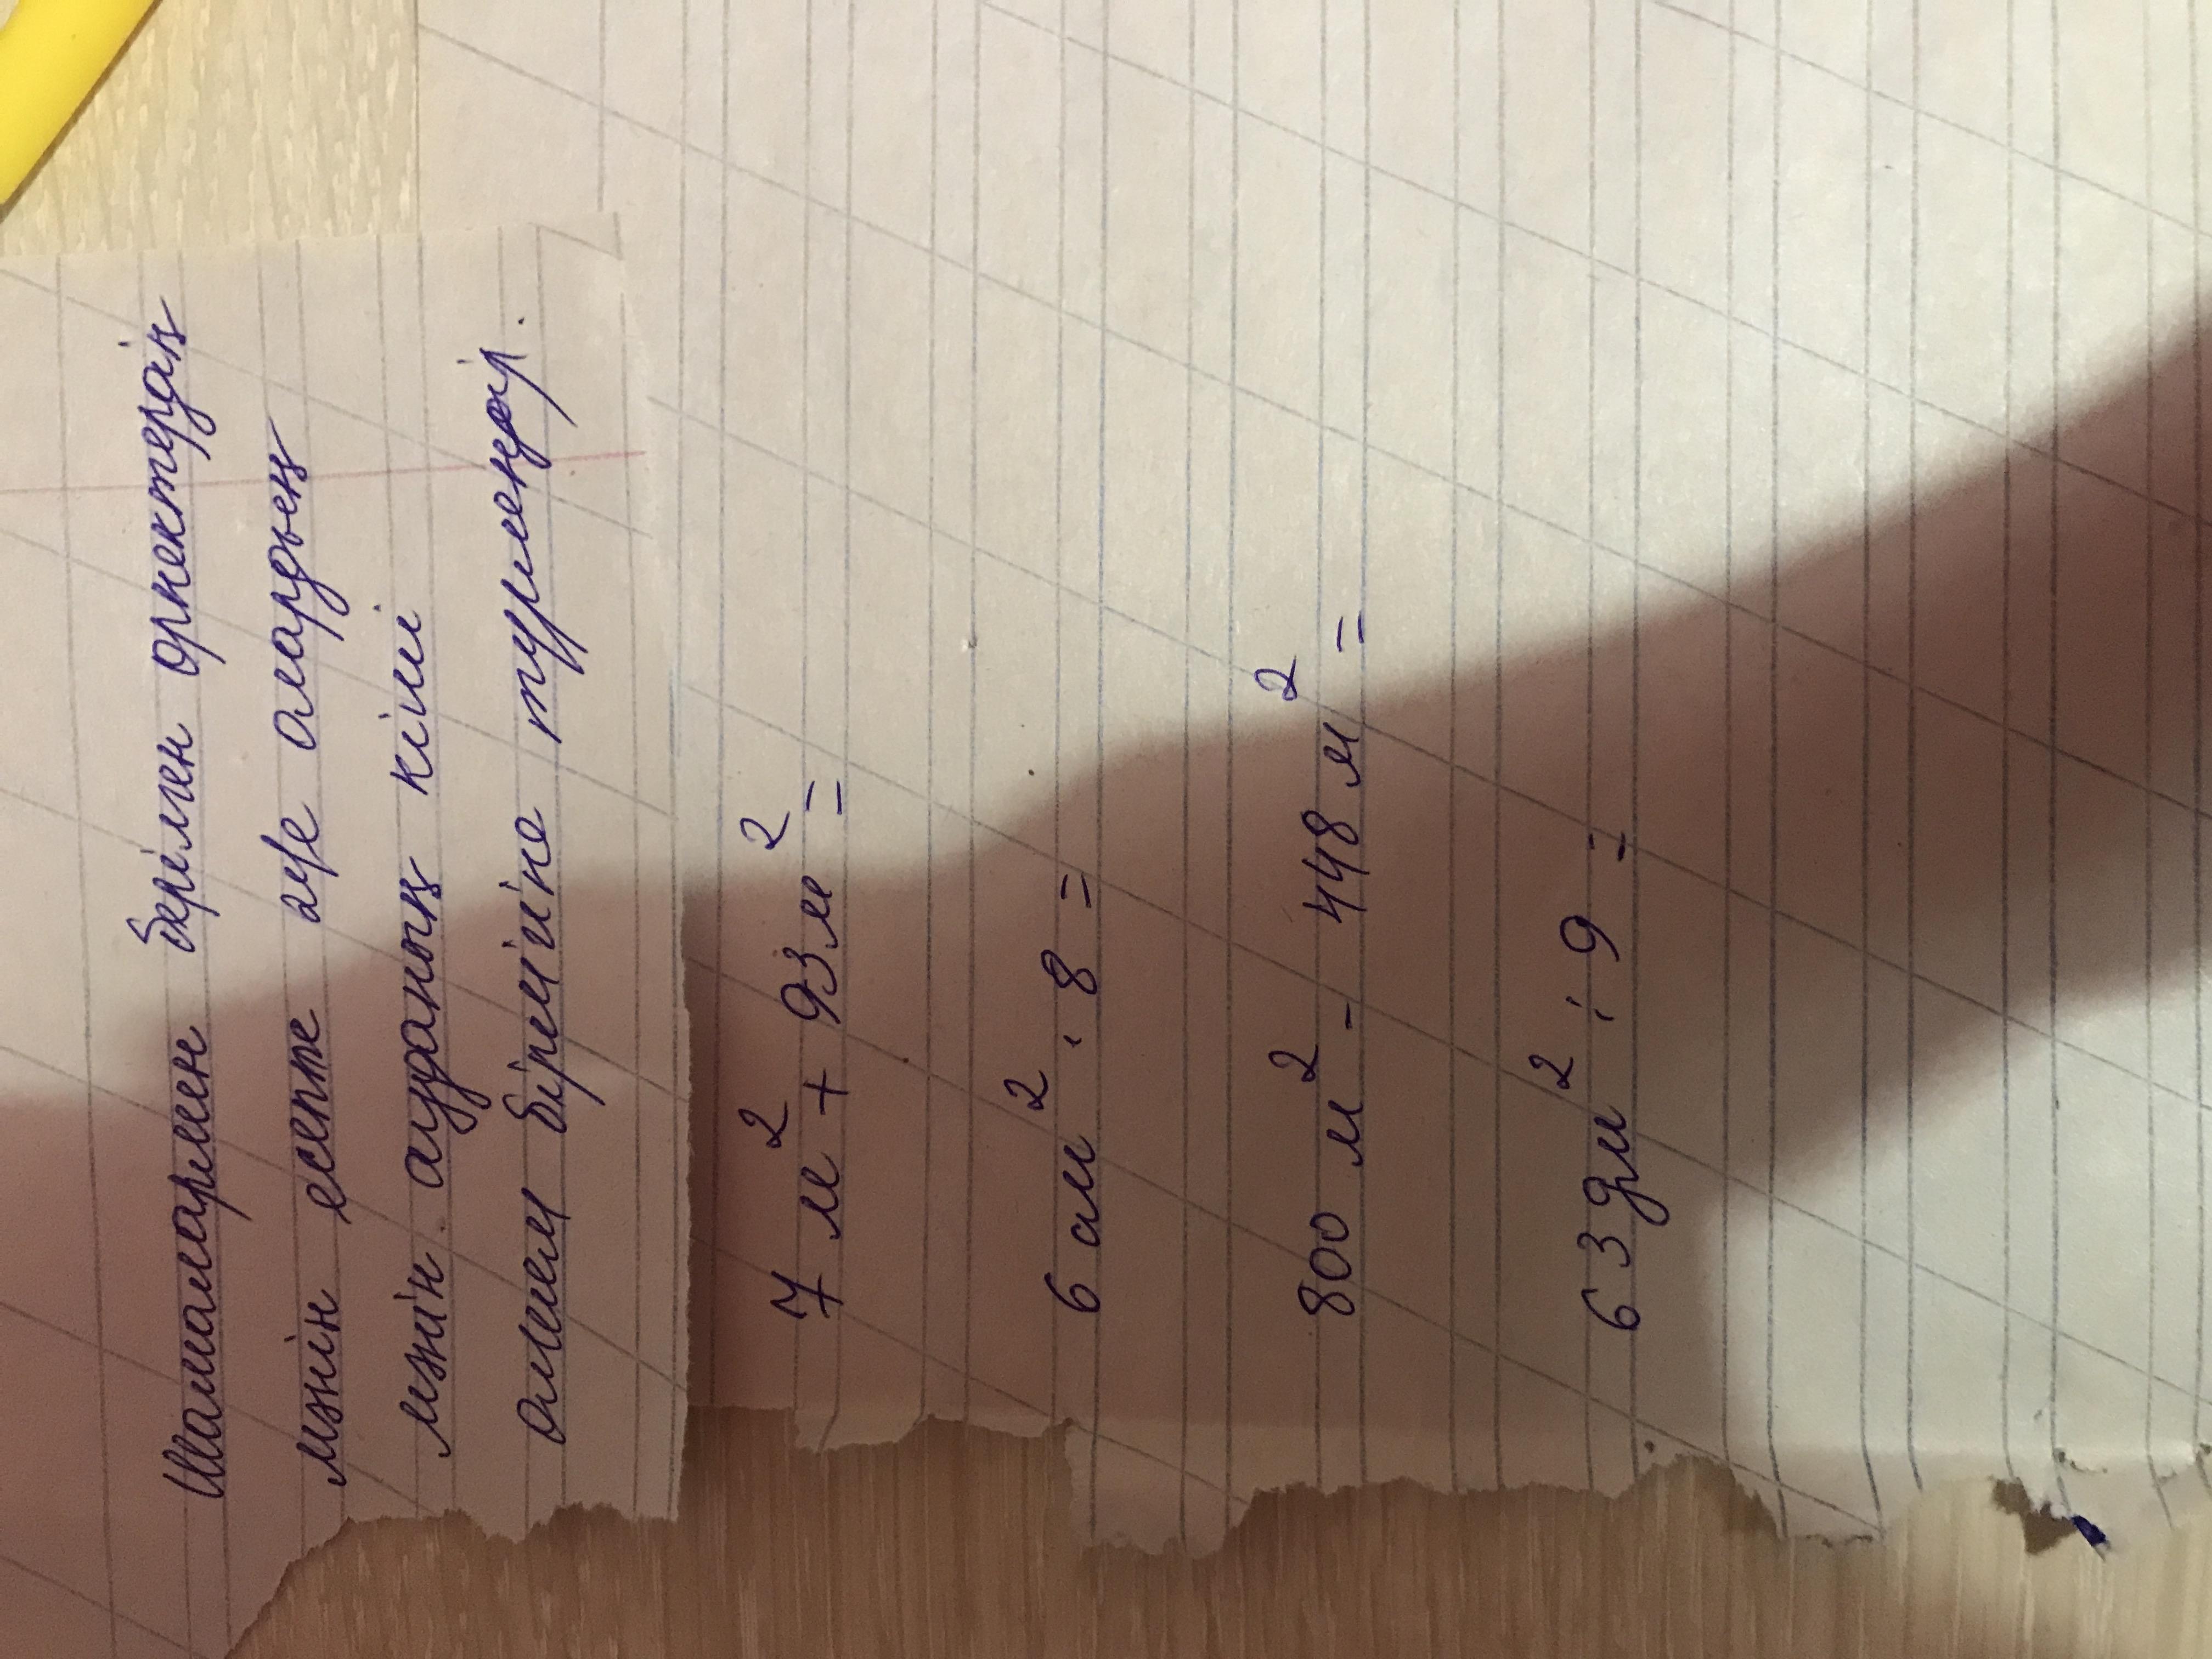 Шамалармен берілген орнектердің
мнін есепте әрі олардың
мәнін ауданның кіші
олшем бірлігіне турлендір.
7 м² + 93 м² =
6 см² · 8 =
800 м² - 448 м² =
63 дм² : 9 =